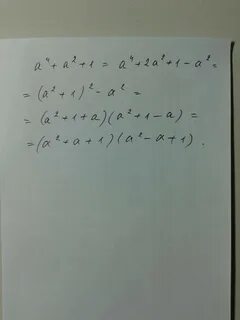 a⁴ + a² + 1 = a⁴ + 2a² + 1 - a² =
= (a² + 1)² - a² =
= (a² + 1 + a)(a² + 1 - a) =
= (a² + a + 1)(a² - a + 1).